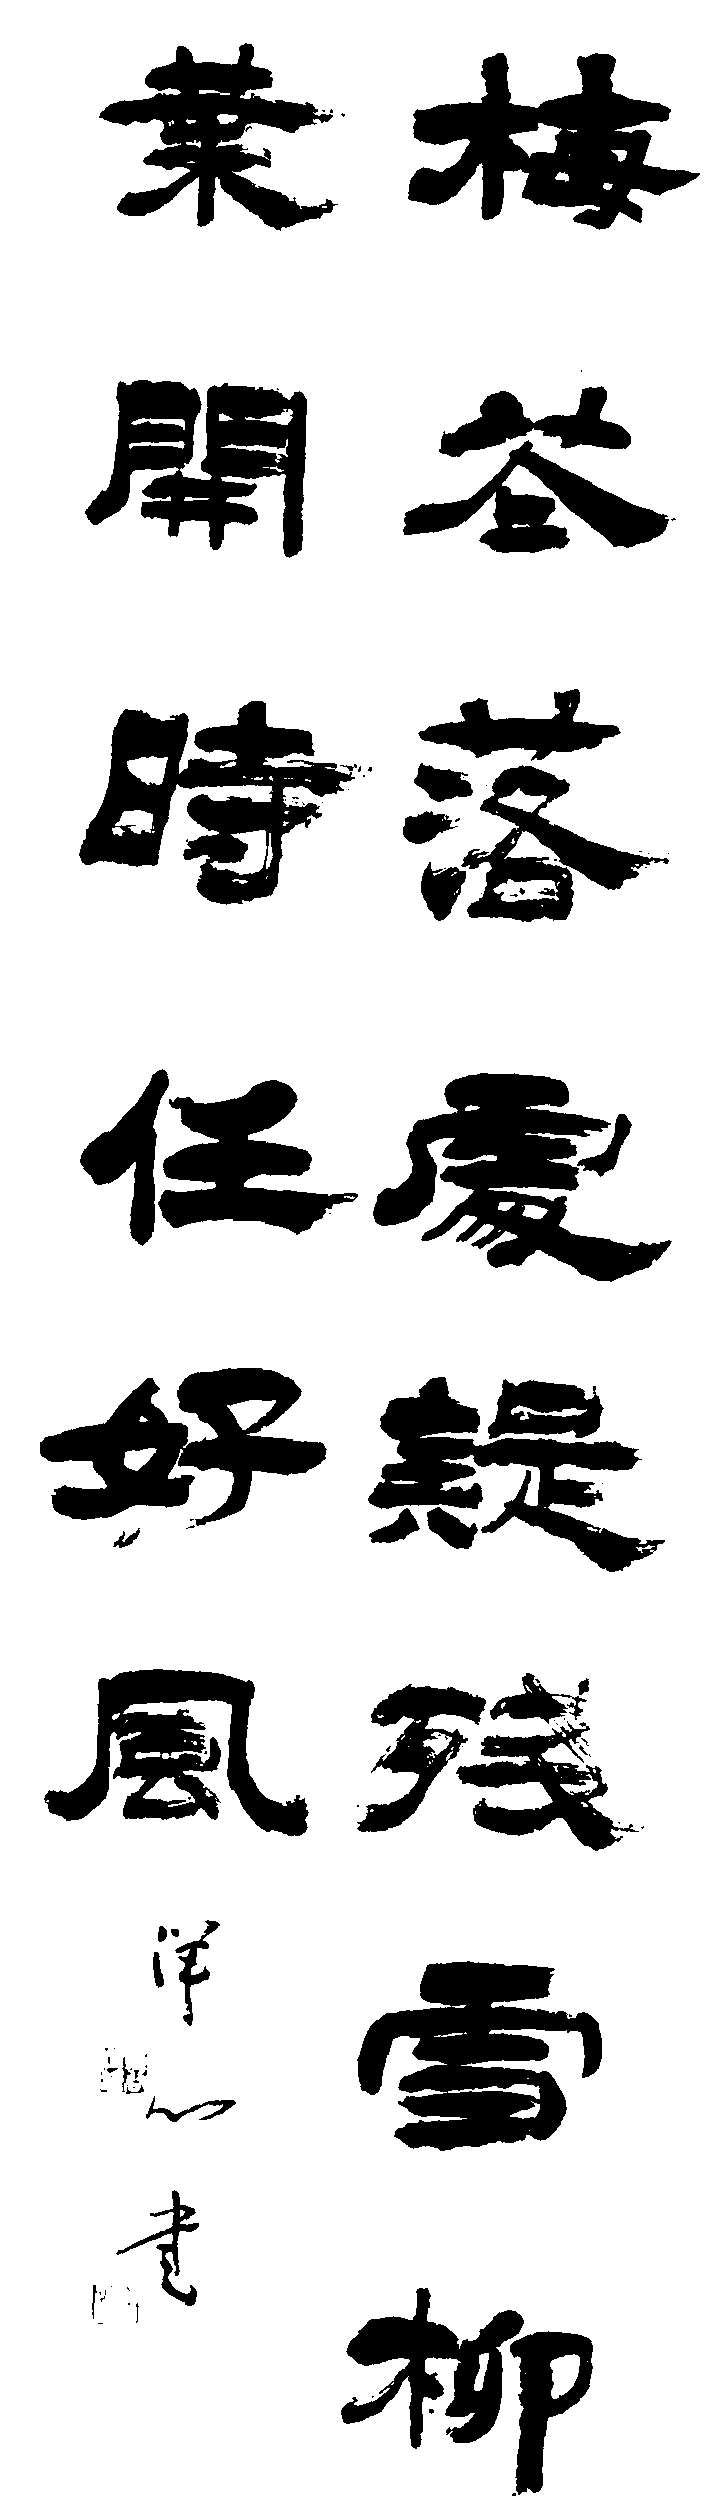 梅花落處疑殘雪柳
葉開時任好風
心书